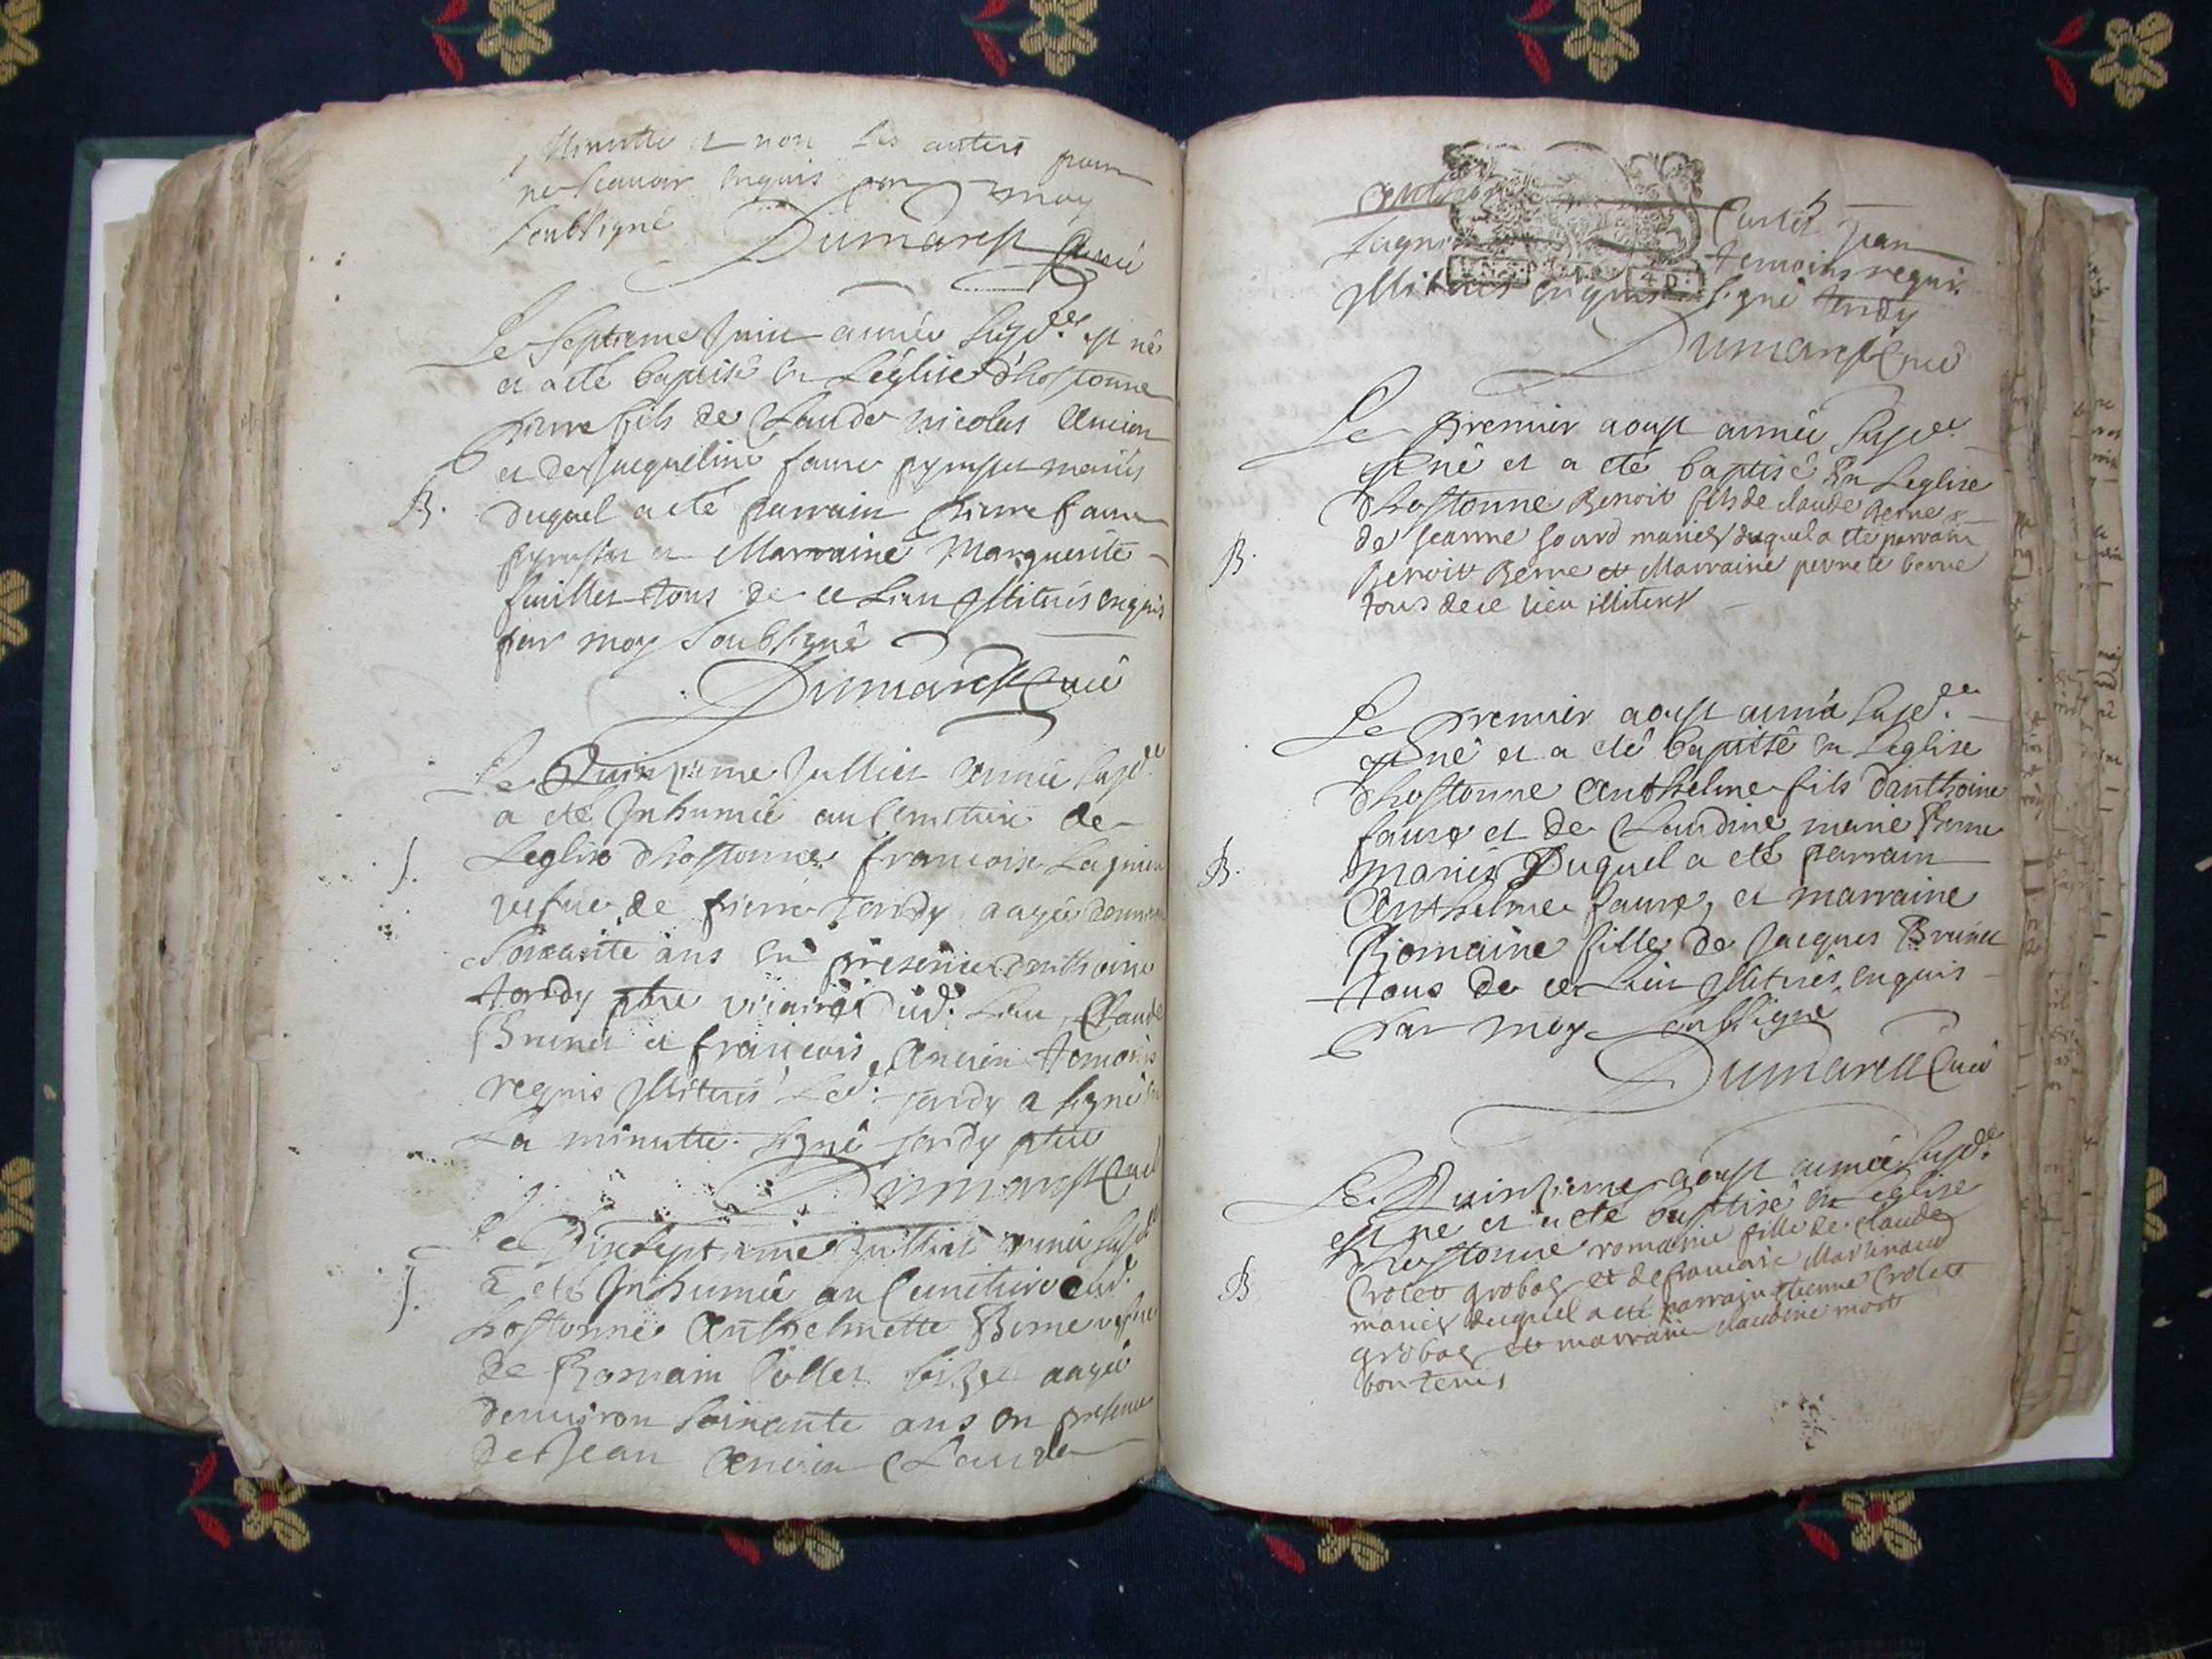 Minutte et non les autres pour
ne scauoir enquis par moy
soubsigné
Dumarest Curé
Le septieme Juin année susd.ee est né
et a eté baptisé en Leglise d'hostonne
pierre fils de Claude nicolas Ancian
et de Jacqueline faure mariés
B.
duquel a eté parrain pierre faure
et Marraine Marguerite
fuillet tous de ce Lieu Illiterés enquis
par moy soubsigné
Dumarest Curé
Le Quinzieme Juillet année susd.ee
a eté Inhumée au Cemetiere de
J.
Leglise d'hostonne francoise Lagnieu
uefue de pierre tardy aagée denuiron
soixante ans en presence d'anthoine
tardy ptre vicaire dud. Lieu, Claude
Brunet et francois Ancian temoins
requis Illiterés Led. tardy a signé en
La minutte. signé tardy ptre
Dumarest Curé
Le Dixseptieme Juillet année susd.ee
J.
a eté Inhumée au Cemetiere dud.
hostonne Anthelmette Berne uefue
de Romain Collet aagée
denuiron soixante ans en presence
de Jean Ancian Claude
Jean
temoins requis
Illiterés enquis signé tardy
Dumarest Curé
Le premier aoust année susd.ee
est né et a eté baptisé en Leglise
dhostonne Benoit fils de claude Berne &
de jeanne gourd mariés duquel a eté parrain
B.
Benoit Berne et Marraine pernete berne
tous de ce lieu illiterés
Le premier aoust année susd.ee
est né et a eté baptisé en Leglise
dhostonne Anthelme fils d'anthoine
faure et de Claudine marie Berne
B.
mariés Duquel a eté parrain
Anthelme faure, et marraine
Romaine fille de Jacques Brunet
tous de ce Lieu Illiterés enquis
par moy soubsigné
Dumarest Curé
Le Quinzieme aoust année susd.ee
est né et a eté baptisé en Leglise
dhostonne romaine fille de claude
B
Crolet grobos et de francoise Martinand
mariés duquel a eté parrain etienne Crolet
grobos et marraine claudine